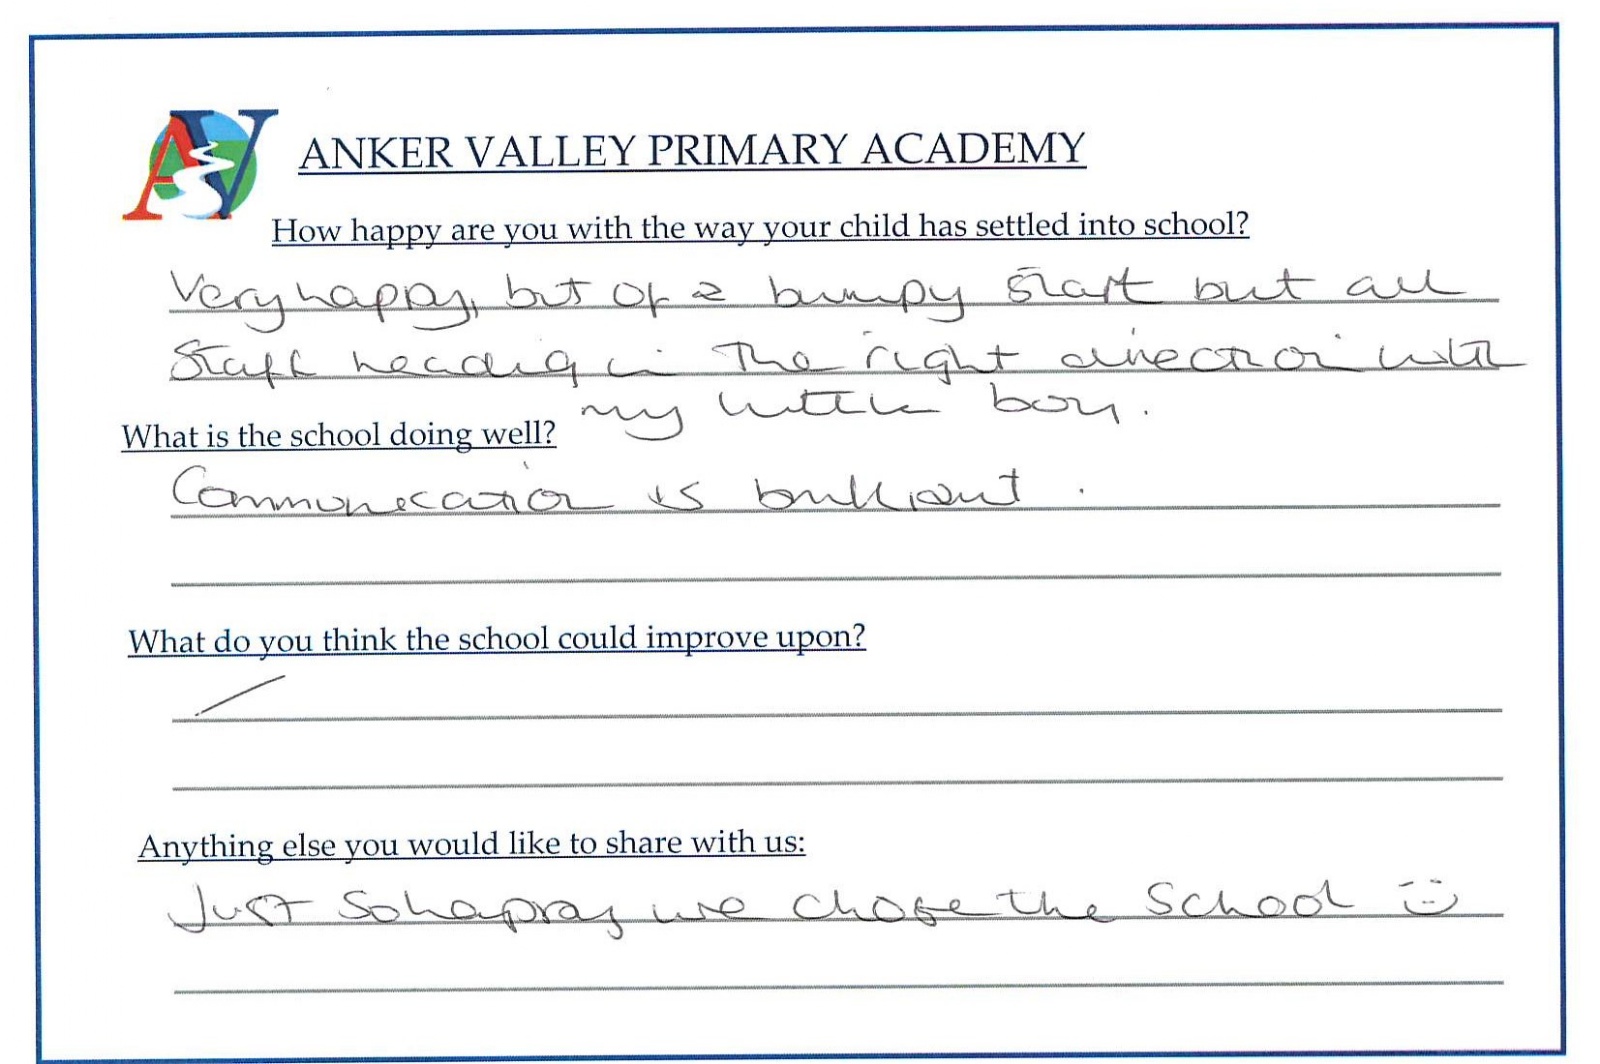 AV
ANKER VALLEY PRIMARY ACADEMY
How happy are you with the way your child has settled into school?
Very happy, bit of a bumpy start but all
Staff heading in the right direction with
my little boy.
What is the school doing well?
Communication is brilliant.
What do you think the school could improve upon?
/
Anything else you would like to share with us:
Just so happy we chose the School :)